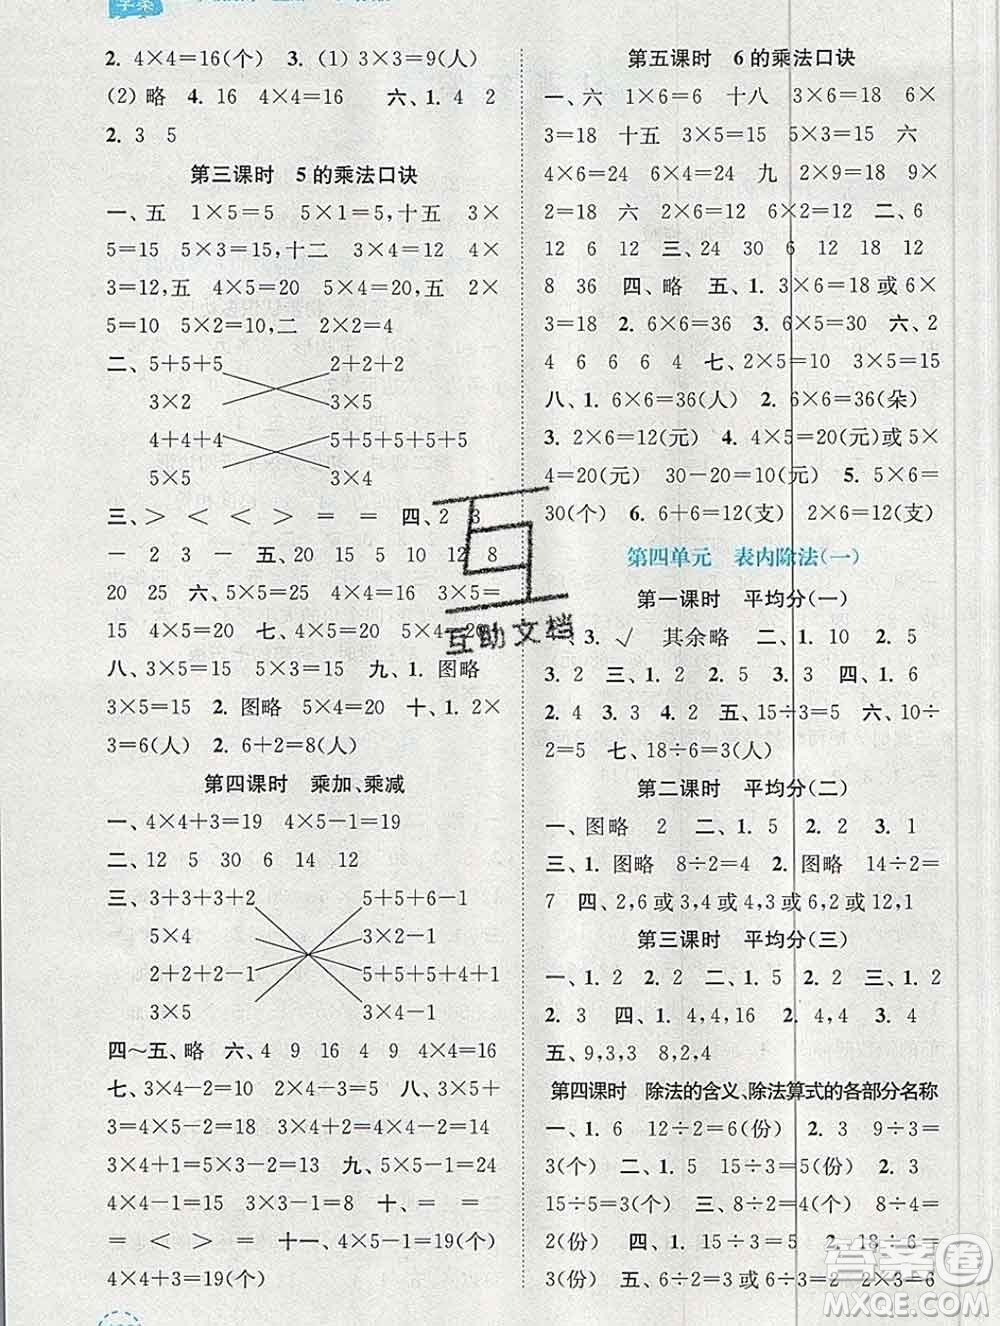 学案
2. 4×4=16(个) 3. (1) 3×3=9(人)
(2) 略 4. 16 4×4=16 六、1. 4 2
2. 3 5
第三课时 5的乘法口诀
一、五 1×5=5 5×1=5,十五 3×
5=15 5×3=15,十二 3×4=12 4×
3=12,五 4×5=20 5×4=20,五 2×
5=10 5×2=10,二 2×2=4
二、5+5+5 2+2+2
3×2 3×5
4+4+4 5+5+5+5+5
5×5 3×4
三、> < < > = = 四、2 3
一 2 3 一 五、20 15 10 12 8
20 25 六、3×5=15 4×5=20 3×5=
15 4×5=20 七、5×4=20 5×4=20
八、3×5=15 3×5=15 九、1. 图略
3×5=15 2. 图略 4×5=20 十、1. 2×
3=6(人) 2. 6+2=8(人)
第四课时 乘加、乘减
一、4×4+3=19 4×5-1=19
二、12 5 30 6 14 12
三、3+3+3+2 5+5+6-1
5×4 3×2-1
2+2+2-1 5+5+5+4+1
3×5 3×4-1
四~五、略 六、4 9 16 4 4×4=16
七、3×4-2=10 2×4+2=10 3×3+
1=10 2×5=10 八、3×4+2=14
4×3+1=5×3-2=13 九、5×5-1=24
4×4-1=15 3×3-1=8 十、= =
= < > = 十一、4×5-1=19(个)
4×4+3=19(个)
第五课时 6的乘法口诀
一、六 1×6=6 十八 3×6=18 6×
3=18 十五 3×5=15 5×3=15 六
4×6=24 6×4=24 九 2×9=18 9×
2=18 六 2×6=12 6×2=12 二、6
12 6 30 三、24 30 6 12 18 12
8 36 四、略 五、1. 3×6=18 6×
3=18 2. 6×5=30 5×6=30 六、2
4 6 6 6 4 七、2×5=10 3×5=15
八、1. 6×6=36(人) 2. 6×6=36(朵)
3. 2×6=12(元) 4. 4×5=20(元)或5×
4=20(元) 30-20=10(元) 5. 5×6=
30(个) 6. 6+6=12(支) 2×6=12(支)
第四单元 表内除法(一)
第一课时 平均分(一)
3. √ 其余略 二、1. 10 2. 5
3. 2 三、1. 2 2. 5 四、1. 6
2. 4 3. 3 4. 2 五、15÷3=5 六、10÷
2=5 七、18÷6=3(人)
第二课时 平均分(二)
一、图略 2 二、1. 5 2. 2 3. 1
三、1. 图略 8÷2=4 2. 图略 14÷2=
7 四、2,6 或 3,4 或 4,3 或 6,2 或 12,1
第三课时 平均分(三)
一、1. 2 2. 5 二、1. 3 2. 4 三、1. 2
2. 3 四、1. 4,4,16 2. 4,4 3. 4
五、9,3,3 8,2,4
第四课时 除法的含义、除法算式的各部分名称
一、1. 6 12÷2=6(份) 2. 3 9÷3=
3(个) 二、1. 5 15÷3=5(份) 2. 3
15÷5=3(个) 三、8÷2=4(个) 8÷4=
2(份) 四、1. 15÷3=5(个) 2. 6÷2=
3(份) 五、6÷2=3 2×3=6
互助文档
答案圈
MXQE.COM